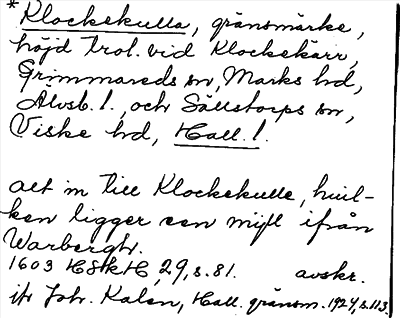 * Klockekulla, gränsmärke,
höjd trol. vid Klockekärr,
Grimmareds sn, Marks hd,
Älvsb. l., och Sällstorps sn,
Viske hd, Hall. l.
alt in till Klockekulle, huil-
ken ligger een mijl ifrån
Warbergh.
1603 HSH H, 29, s. 81. avskr.
jfr Joh. Kalén, Hall. gränsm. 1924, s. 113.